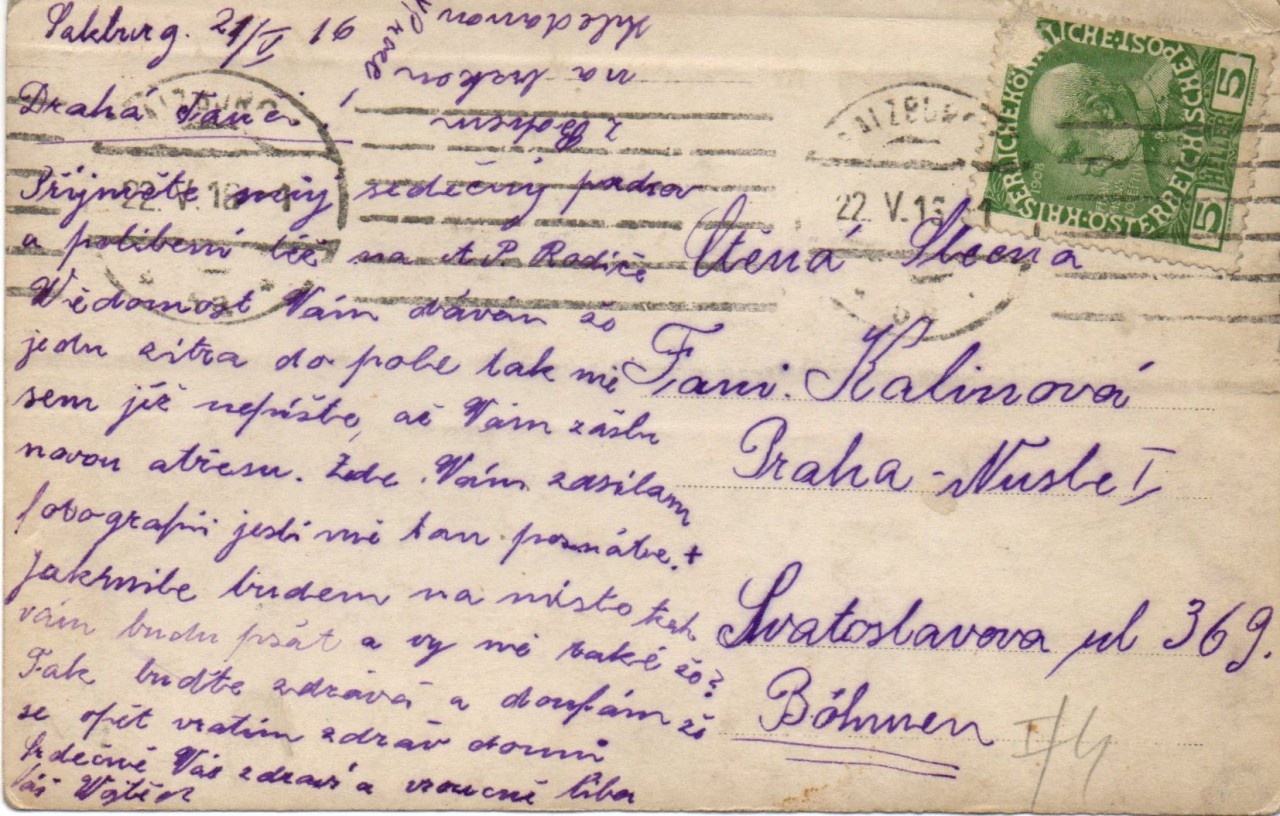 Salzburg. 21/V 16
Drahá Fanci!
Přijměte můj srdečný pozdrav
a políbení též na A P. Rodiče
Wědomost Vám dáván žo
jedu zitra do pole tak mě
sem již nepište, až Vám zašlu
novou atresu. Zde Vám zasilam
fotografii jestli mě tan poznáte. +
Jakmile budem na místo tak
vám budu psát a vy mě také žo?
Tak buďte zdráva a doufám že
se opět vratím zdráv domů
Srdečně Vás zdraví a vroucně líba
Váš Wojtěch
na
SALZBURG
22. V. 16
SALZBURG
22. V. 16
KAISERLICHE KÖNIGLICHE ÖSTERREICHISCHE POST
5
HELLER
5
1908
Ctěná Slečna
Fani. Kalinová
Praha - Nusle I
Svatoslavova ul 369.
Böhmen
II/4